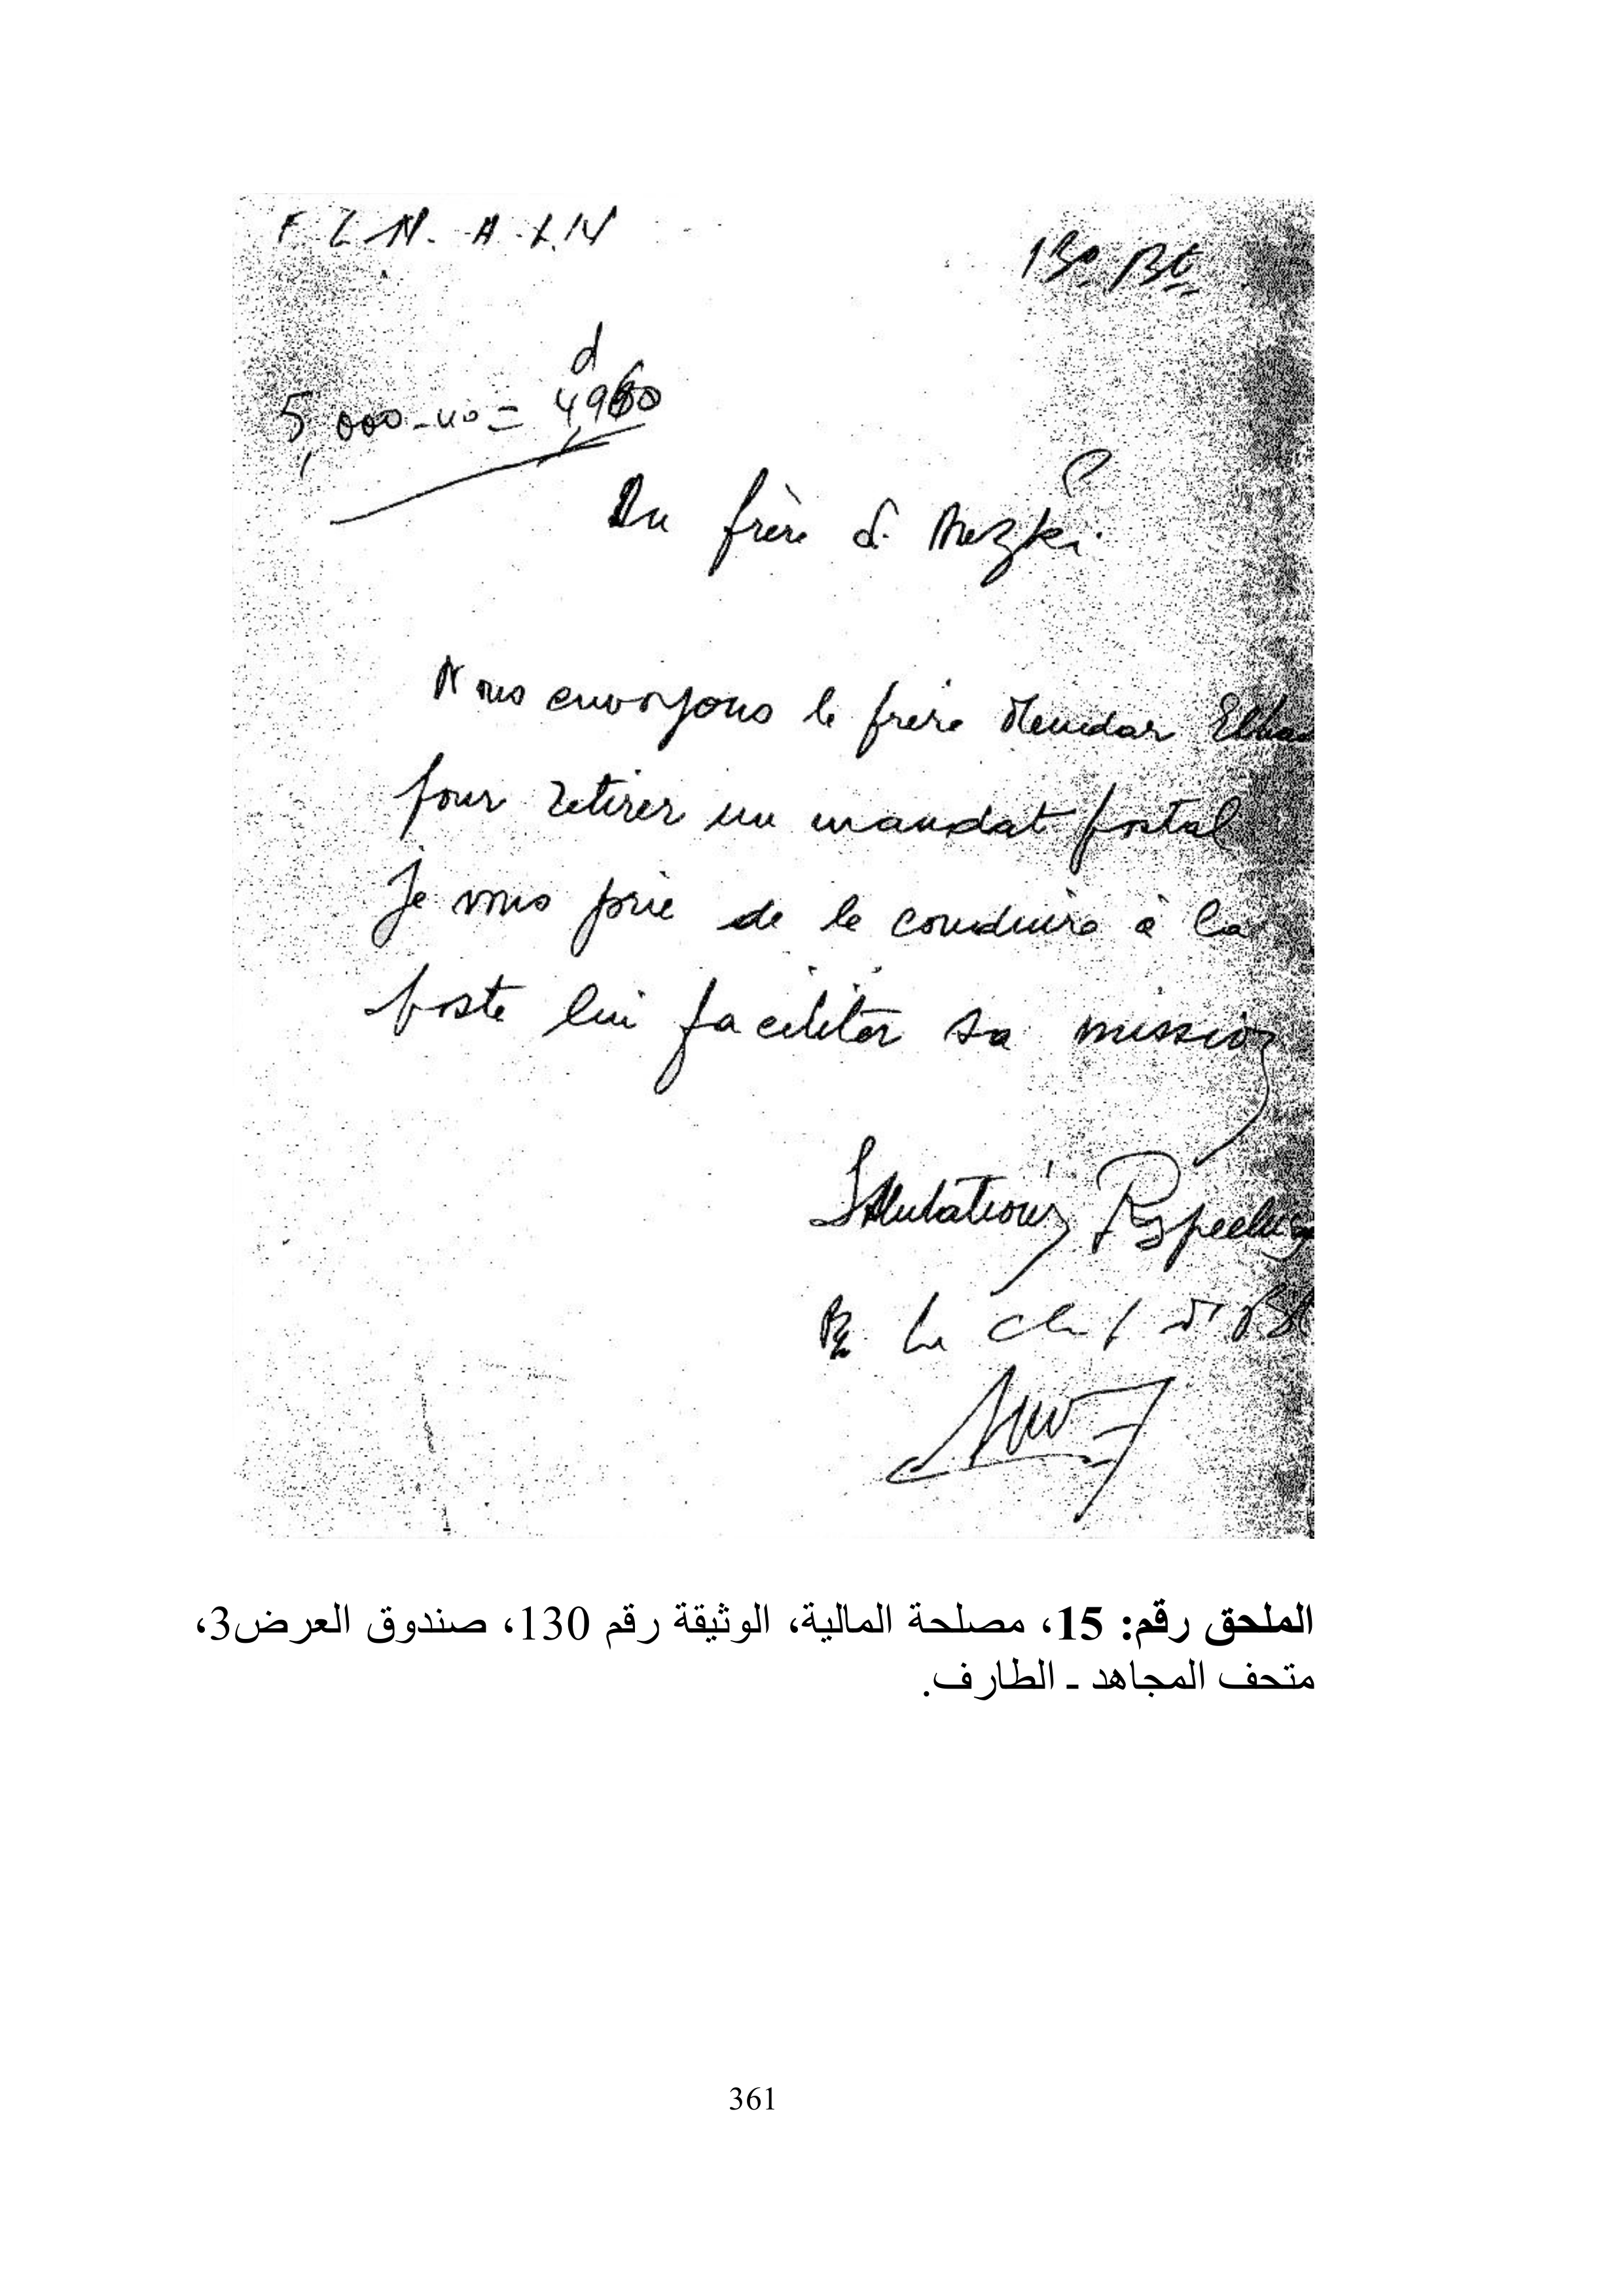 F.L.N. A.L.N
13e Bt
d
5,000-40 = 4960
Du frère S. Mezki
Nous envoyons le frère Menidar
pour retirer un mandat postal
Je vous prie de le conduire à la
poste lui faciliter sa mission
Salutations
Le chef d Bt
الملحق رقم: 15، مصلحة المالية، الوثيقة رقم 130، صندوق العرض3،
متحف المجاهد ـ الطارف.
361